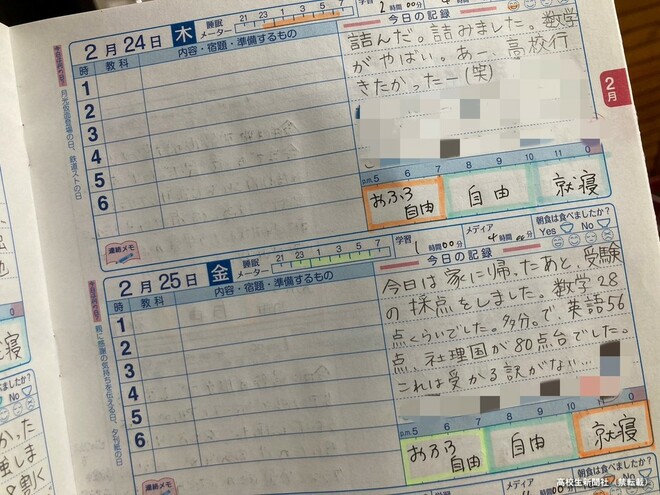 2月24日 木
睡眠メーター
21 23 1 3 5 7
時 教科 内容・宿題・準備するもの
1
2
3
4
5
6
連絡メモ
学習 時間00分
今日の記録
詰んだ。詰みました。数学
がやばい。あー、高校行
きたかったー(笑)
p.m. 5 6 7 8 9 10 11 0
おふろ
自由
自由
就寝
2月
2月25日 金
睡眠メーター
21 23 1 3 5 7
時 教科 内容・宿題・準備するもの
1
2
3
4
5
6
連絡メモ
学習 1時間00分
メディア 4時間00分
朝食は食べましたか?
Yes No
今日の記録
今日は家に帰ったあと、受験
の採点をしました。数学28
点くらいでした。多分。で、英語56
点、社理国が80点台でした。
これは受かる訳がない…
p.m. 5 6 7 8 9 10 11 0
おふろ
自由
自由
就寝
高校生新聞社/禁転載